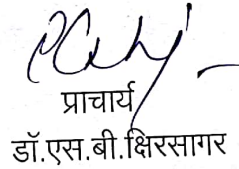 प्राचार्य
डॉ.एस.बी.क्षिरसागर